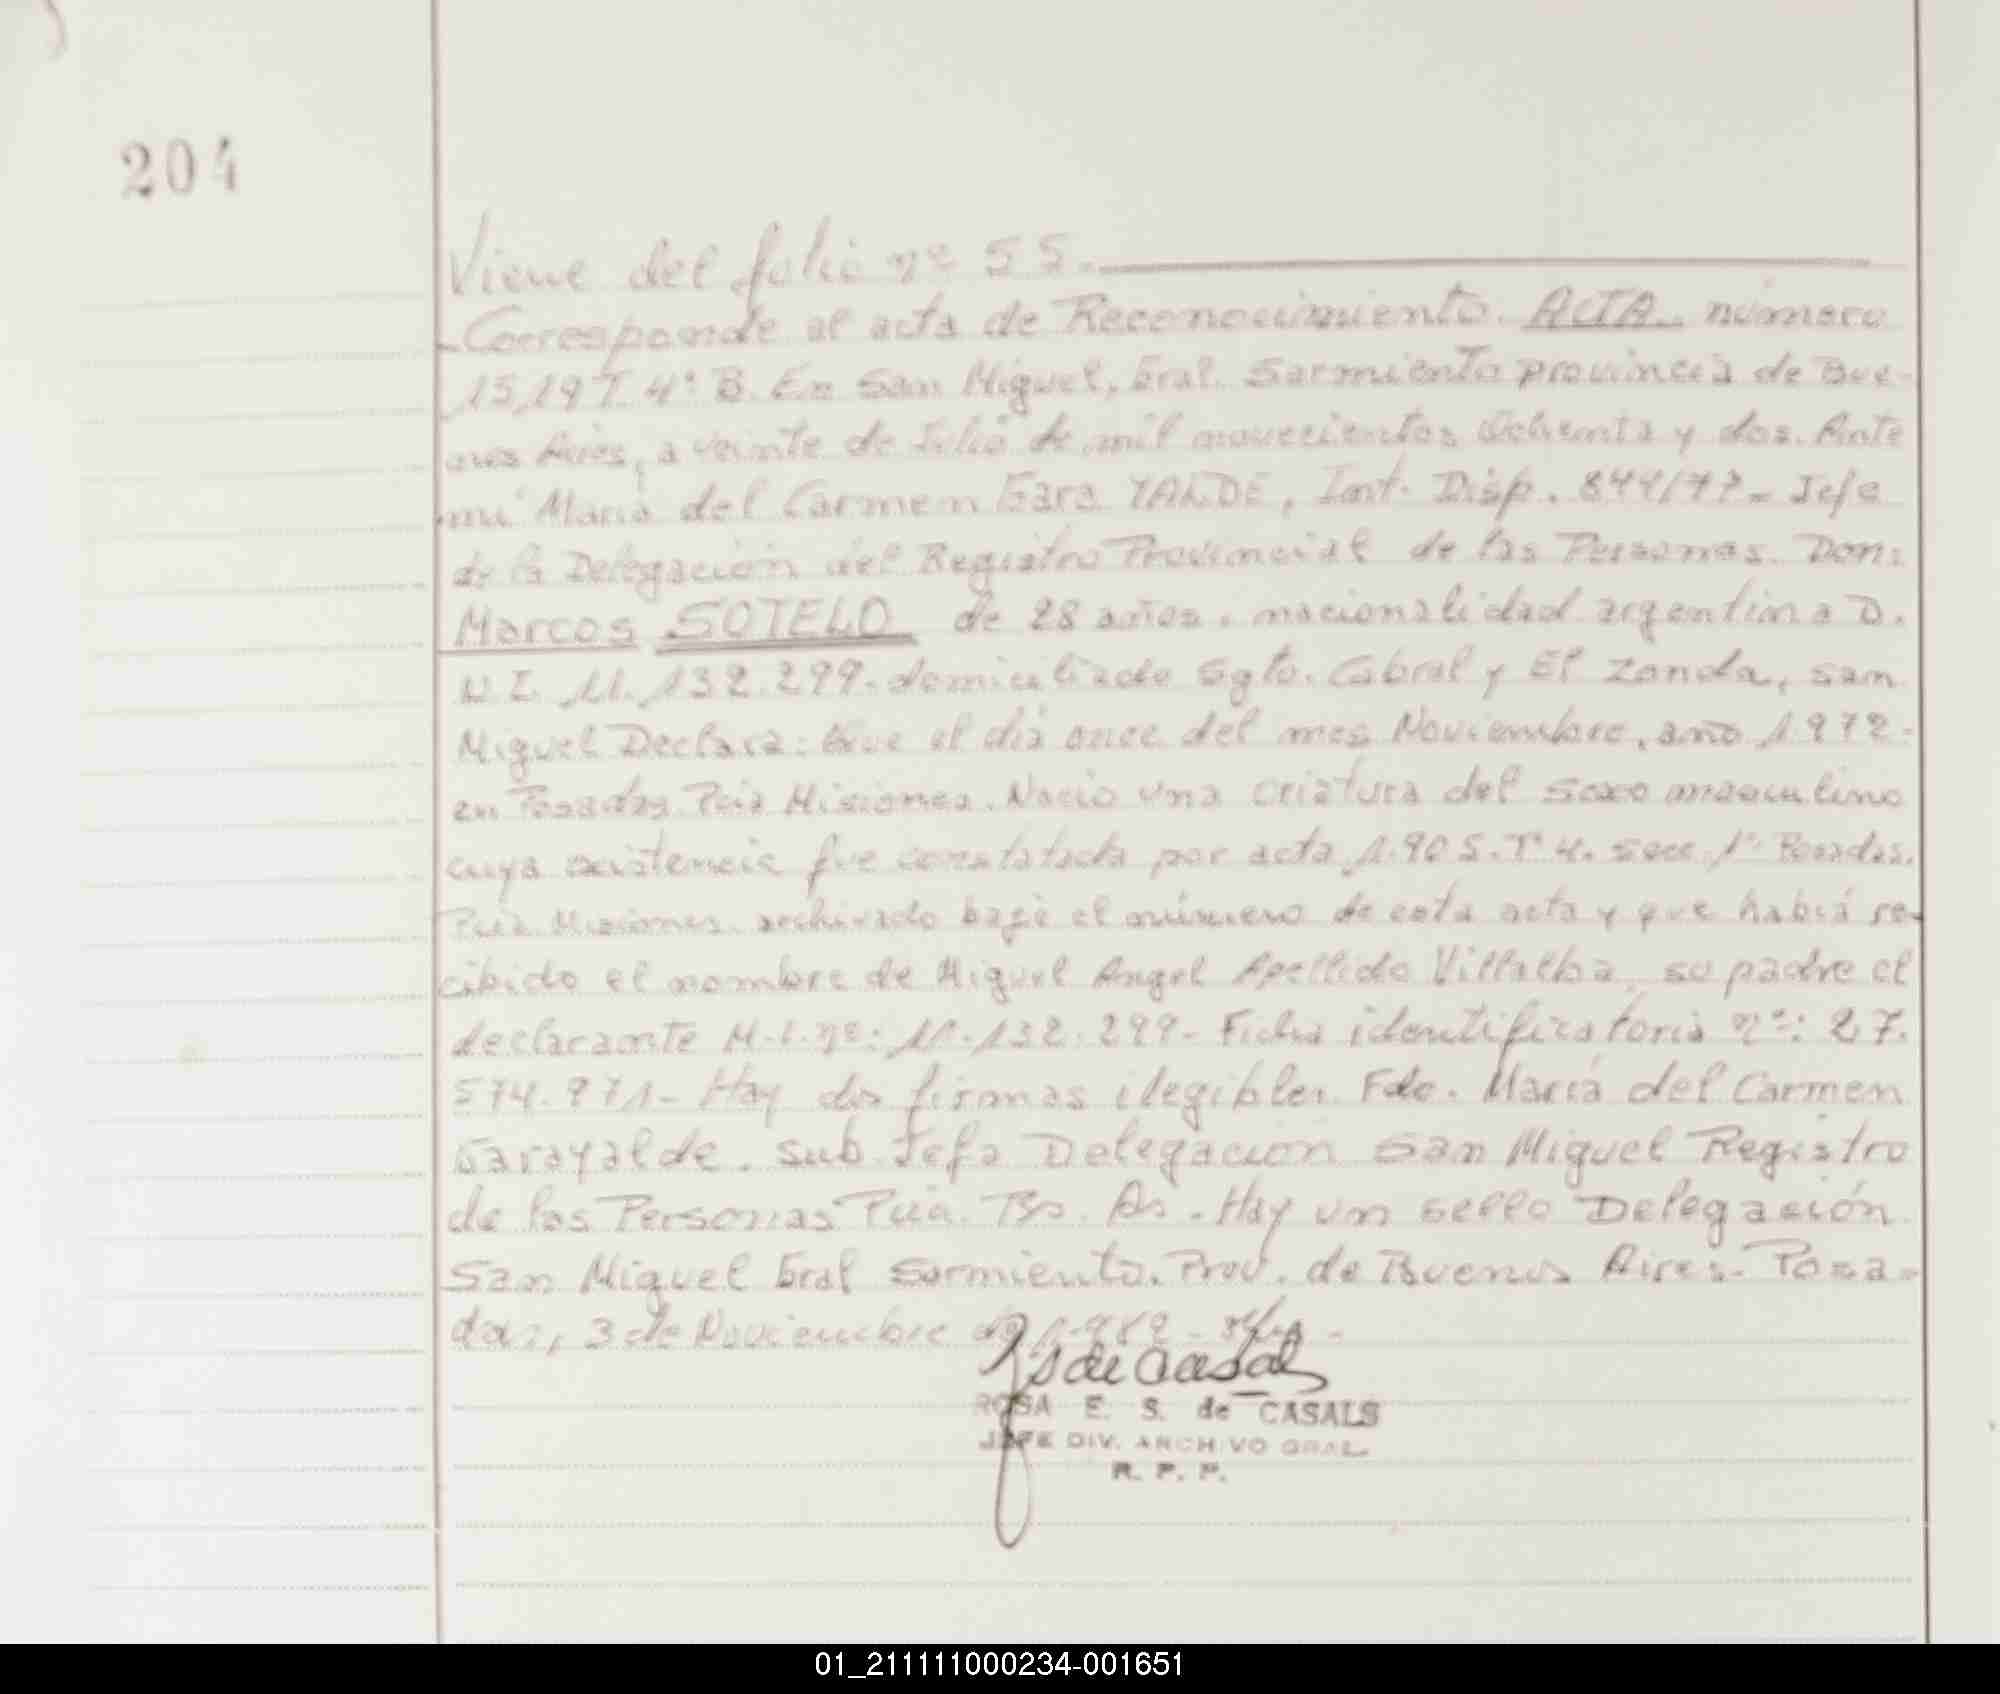 204
Viene del folio nº 55.
Corresponde al acta de Reconocimiento. ACTA número
15,19 T. 4º B. En San Miguel, Gral. Sarmiento provincia de Bue-
nos Aires, a veinte de Julio de mil novecientos ochenta y dos. Ante
mi María del Carmen Gara YALDE, Int. Disp. 844/77- Jefe
de la Delegación del Registro Provincial de las Personas. Don:
Marcos SOTELO de 28 años, nacionalidad argentina D.
N I. 11.132.299. domiciliado Sgto. Cabral y El Zonda, San
Miguel Declara: Que el día once del mes Noviembre, año 1972-
en Posadas Pcia Misiones. Nacio una criatura del sexo masculino
cuya existencia fue constatada por acta 1.905. Tº 4. secc. 1º Posadas.
Pcia Misiones. archivado bajo el número de esta acta y que habiá re-
cibido el nombre de Miguel Angel Apellido Villalba, su padre el
declarante M.I. nº: 11.132.299- Ficha identificatoria nº: 27.
574.971- Hay dos firmas ilegibles. Fdo. María del Carmen
Garayalde. Sub Jefa Delegación San Miguel Registro
de las Personas Pcia. Bs. As. Hay un sello Delegación
San Miguel Gral Sarmiento. Prov. de Buenos Aires. Posa-
das, 3 de Noviembre de 1.982-
S de Casals
ROSA E. S. de CASALS
JEFE DIV. ARCHIVO GRAL.
R. P. P.
01_211111000234-001651